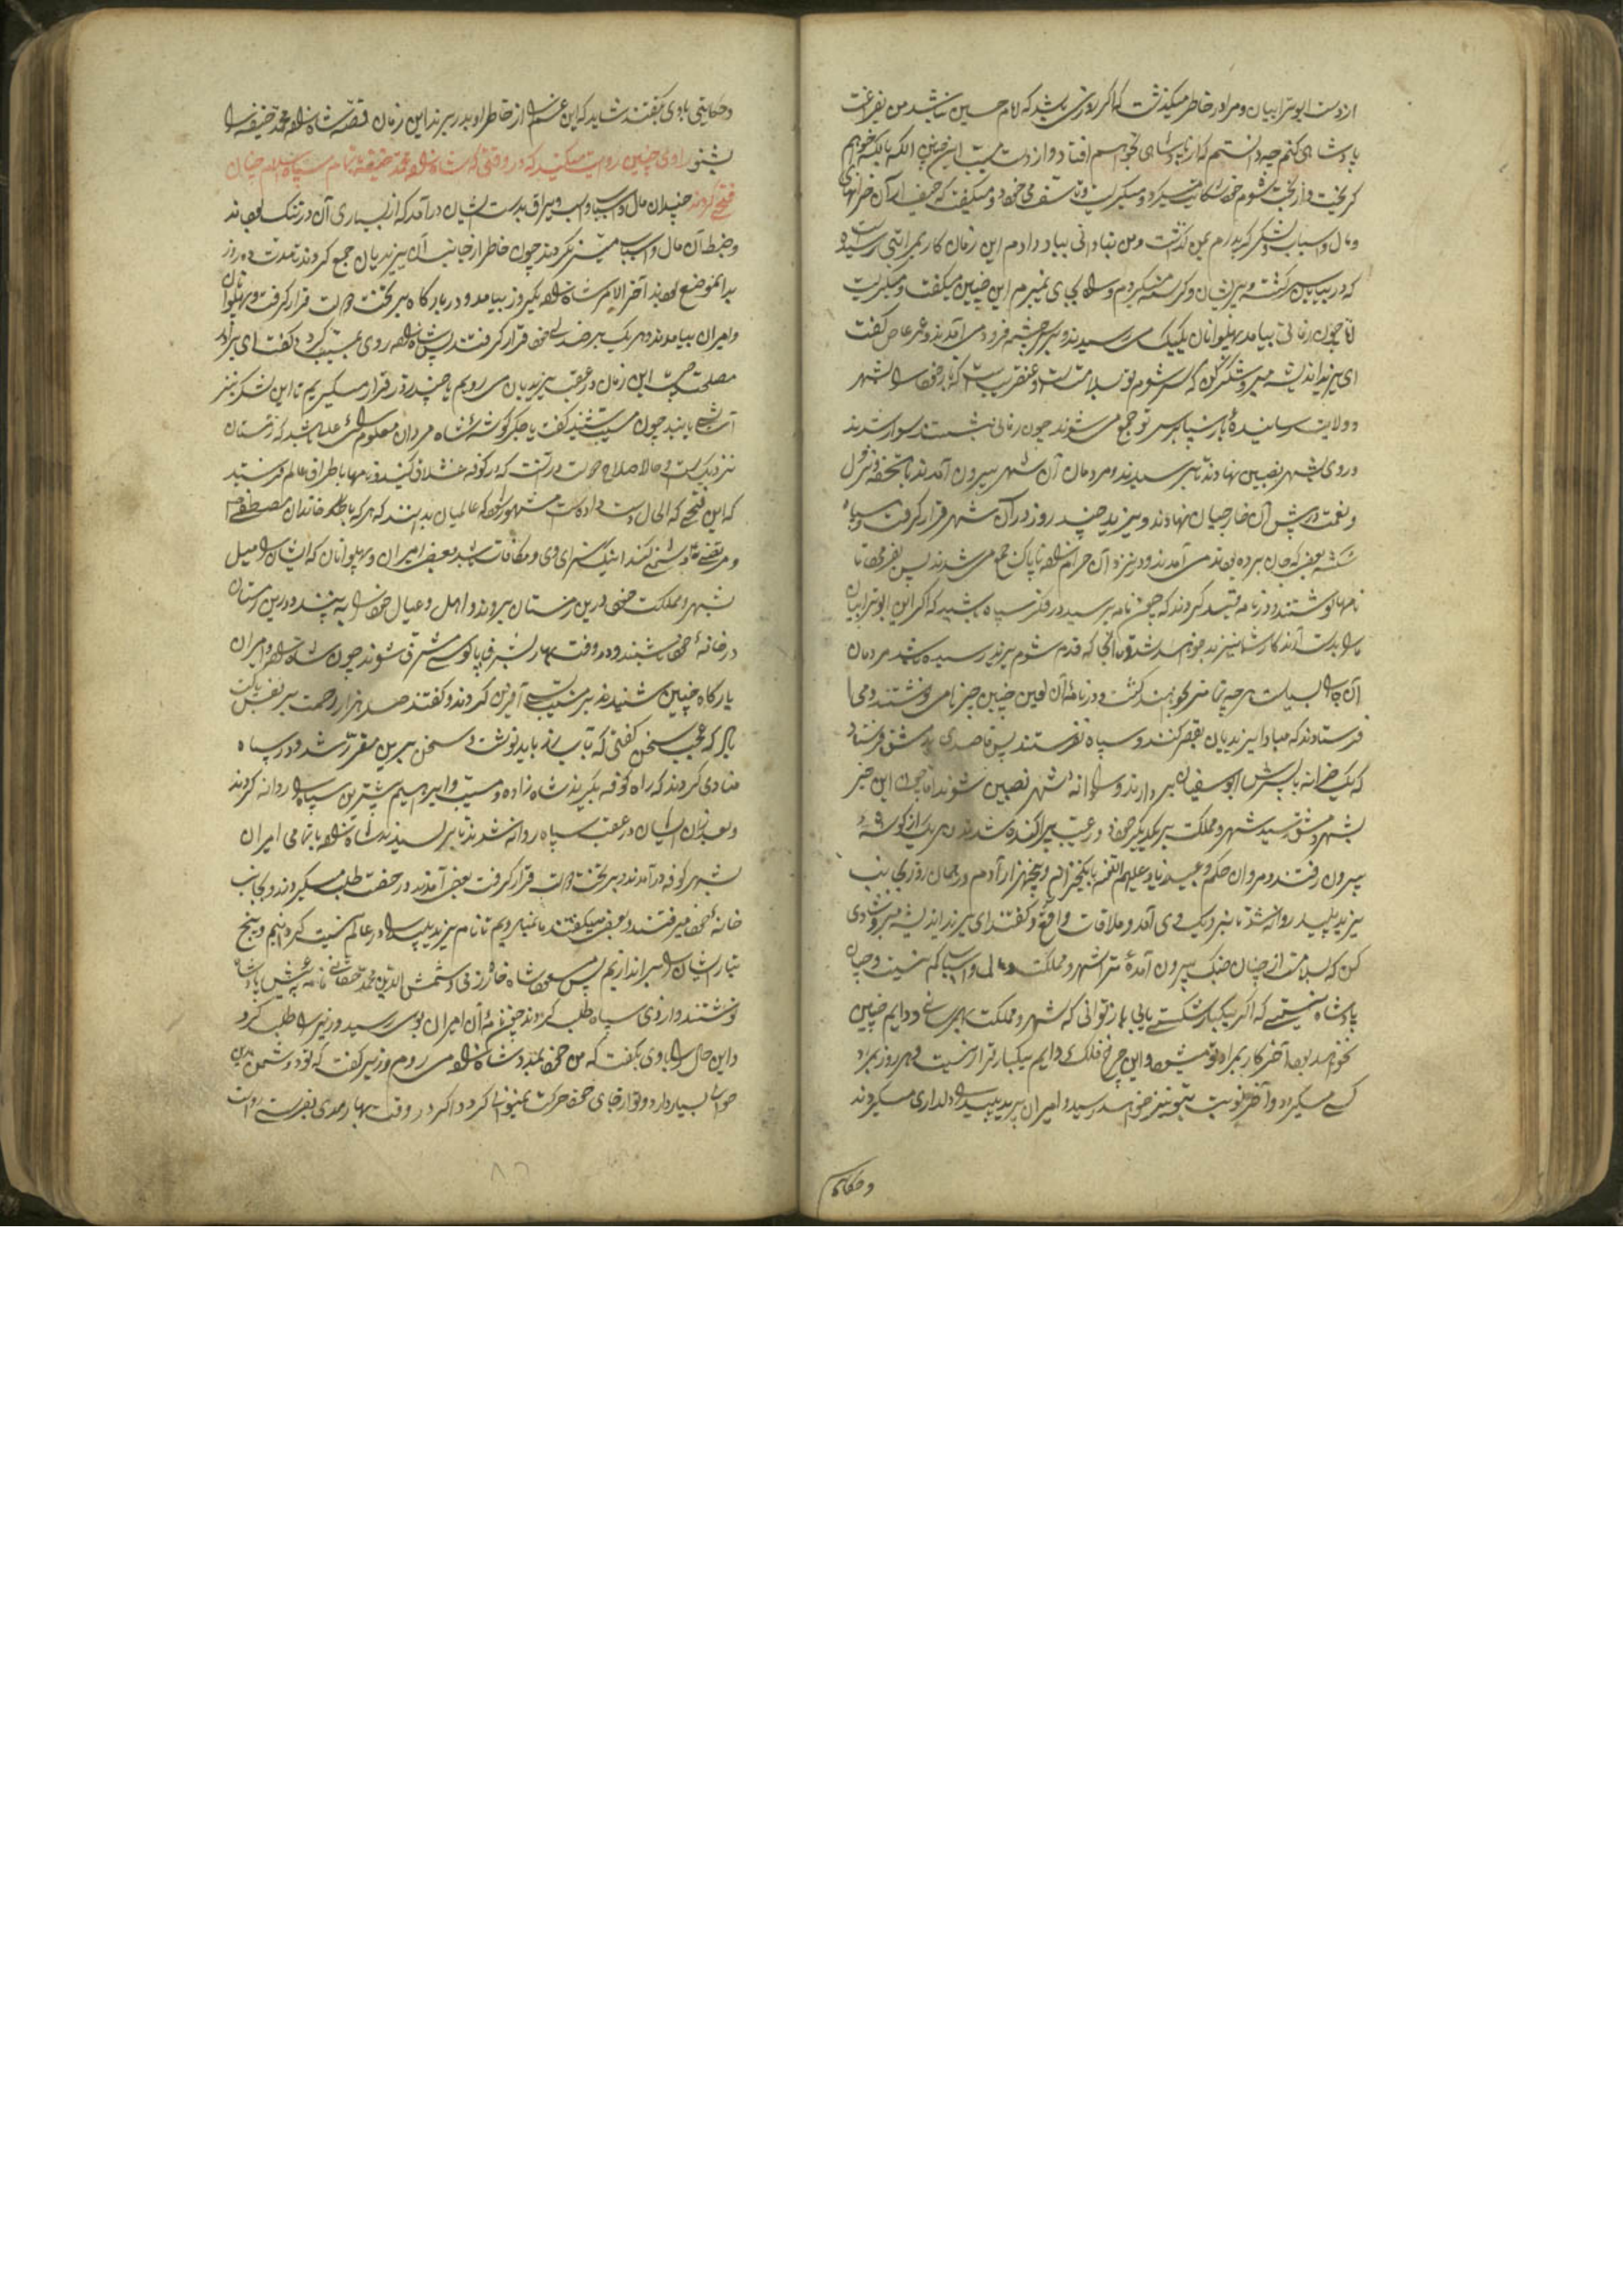 از دست ابوترابیان و مرا در خاطر میگذشت که اگر روزی باشد که امام حسین نباشد من بفراغت
پادشاهی کنم چه دانستم که از پادشاهی نخواهم افتاد و از دست مسیب این چنین
گریخت و از بخت شوم خود شکایت میکرد و میگریست و تاسف می خورد و میگفت که حیف از آن خزانهای
و مال و اسباب و لشکر که پدرم بمن گذاشت و من بنادانی بباد دادم این زمان کار بمرا تبی رسیده
که در بیابان سرگشته و پریشان و گرسنه میگردم و راه بجای نمیبرم این چنین میگفت و میگریست
اما چون زمانی بیامد پهلوانان یکیک می رسیدند و بر سر چشمه فرود می آمدند و عمر عاص گفت
ای یزید اندیشه مبر و شکر کن که سر شوم تو بسلامتست و عنقریبست که باز خود را بشهر
و ولایت رسانیدهٔ باز سپاه بر سر تو جمع می شوند چون زمانی بنشستند سوار شدند
و روی بشهر نصیبین نهادند تا برسیدند و مردمان آن شهر بیرون آمدند با تحفه و نزول
و نعمت پیش آن خارجیان نهادند و یزید چند روز در آن شهر قرار گرفت و سپاه
شکسته بعضی که جان برده بودند می آمدند و در نزد آن حرامزاده ناپاک جمع می شدند پس بفرمود تا
نامها نوشتند و در نامه قید کردند که چون نامه برسد در فکر سپاه باشید که اگر این ابوترابیان
ما را بدست آرند کار شما نیز بد خواهد شد و آنجا که قدم شوم یزید رسیده باشد مردمان
آن را بسیاست هرچه تمامتر بخواهند کشت و در نامهٔ آن لعین چنین چیزها می نوشتند و می
فرستادند که مبادا یزیدیان تقصیر کنند و سپاه نفرستند پس قاصدی بدمشق فرستاد
که یک خزانه با پسرش ابوسفیان بردارند و روانهٔ شهر نصیبین شوند اما چون این خبر
بشهر دمشق رسید شهر و مملکت بر یکدیگر خورد و رعیت پراکنده شدند هریک از گوشهٔ
بیرون رفتند و مروان حکم و عبید زیاد علیهم اللعنه با یک خزانه و پنجهزار آدم در همان روز بجانب
یزید پلید روانه شد تا بنزدیک وی آمد و ملاقات واقع و گفتند ای یزید اندیشه مبر و شادی
کن که بسلامت از چنان جنگ بیرون آمدهٔ ترا شهر و مملکت و مال و اسباب کم نیست و چنان
پادشاه نیستی که اگر یکبار شکست یابی باز نتوانی که شهر و مملکت بهم رسانی و دایم چنین
نخواهد بود آخر کار بمراد تو میشود و این چرخ فلک دایم بیکبار قرار نیست و هر روز بمراد
کسی میگردد و آخر نوبت بتو نیز خواهد رسید و امیران یزید پلید را دلداری میکردند
و حکایت
و حکایتی با وی گفتند شاید که این غم را از خاطر او بدر برند این زمان قصه شاهزاده محمد حنیفه را
بشنو راوی چنین روایت میکند که در وقتی که شاهزاده محمد حنیفه با تمام سپاه اسلام چنان
فتحی کردند چندان مال و اسباب و اسب و یراق بدست ایشان درآمد که از بسیاری آن در تنگ بودند
و ضبط آن مال و اسباب میسر نکردند چون خاطر از جانب آن یزیدیان جمع کردند تا مدت ده روز
بدانموضع بودند آخر الامر شاهزاده یکروز بیامد و در بارگاه بر تخت دولت قرار گرفت و پهلوانان
و امیران بیامدند و هر یک بر صندلی خود قرار گرفتند پس شاهزاده روی بمسیب کرد و گفت ای برادر
مصلحت چیست این زمان در عقب یزیدیان می رویم یا چند روز قرار میگیریم تا این لشکر نیز
آسایش یابند چون مسیب شنید گفت یا جگرگوشهٔ شاه مردان معلوم رای عالی باشد که زمستان
نزدیکست و حالا صلاح دولت در آنست که در کوفه قشلاق کنید و نامها باطراف عالم فرستید
که این فتحی که الحال دست داده است مشهور شود که عالمیان بدانند که هرکه با خاندان مصطفی
و مرتضی دشمنی کند اینک سزای وی و مکافات باشد و بعضی امیران و پهلوانان که ایشان را میل
شهر و مملکت خود درین زمستان بروند و اهل و عیال خود را ببینند و درین زمستان
در خانهٔ خود باشند و در وقت بهار بشرف پابوسی مشرف شوند چون شاهزاده و امیران
بارگاه چنین شنیدند بر مسیب آفرین کردند و گفتند صد هزار رحمت بر نفس پاکت
باد که عجب سخن گفتی که بآب زر باید نوشت و سخن برین مقرر شد و در سپاه
منادی کردند که راه کوفه بگیرند شاه زاده و مسیب و ابرهیم پیشترین سپاه را روانه کردند
و بعد از آن ایشان در عقب سپاه روانه شدند تا برسیدند شاهزاده با تمامی امیران
بشهر کوفه درآمدند و بر تخت دولت قرار گرفت بعضی آمدند و رخصت طلب میکردند و بجانب
خانهٔ خود میرفتند و بعضی میگفتند ما نمیرویم تا نام یزید پلید را در عالم نیست گردانیم و بیخ
تبار ایشان را براندازیم پس مسعود شاه خوارزمی و شمس الدین محمد نامهٔ پیش پادشاه
نوشتند و از وی سپاه طلب کردند چون نامهٔ آن امیران بوی رسید وزیر را طلب کرد
و این حال را با وی بگفت که من خود بمدد شاهزاده می روم وزیر گفت که تو دشمن
حوالی بسیار داری و تو از جای خود حرکت نمیتوانی کرد و اگر در وقت بهار مددی بفرستی رواست